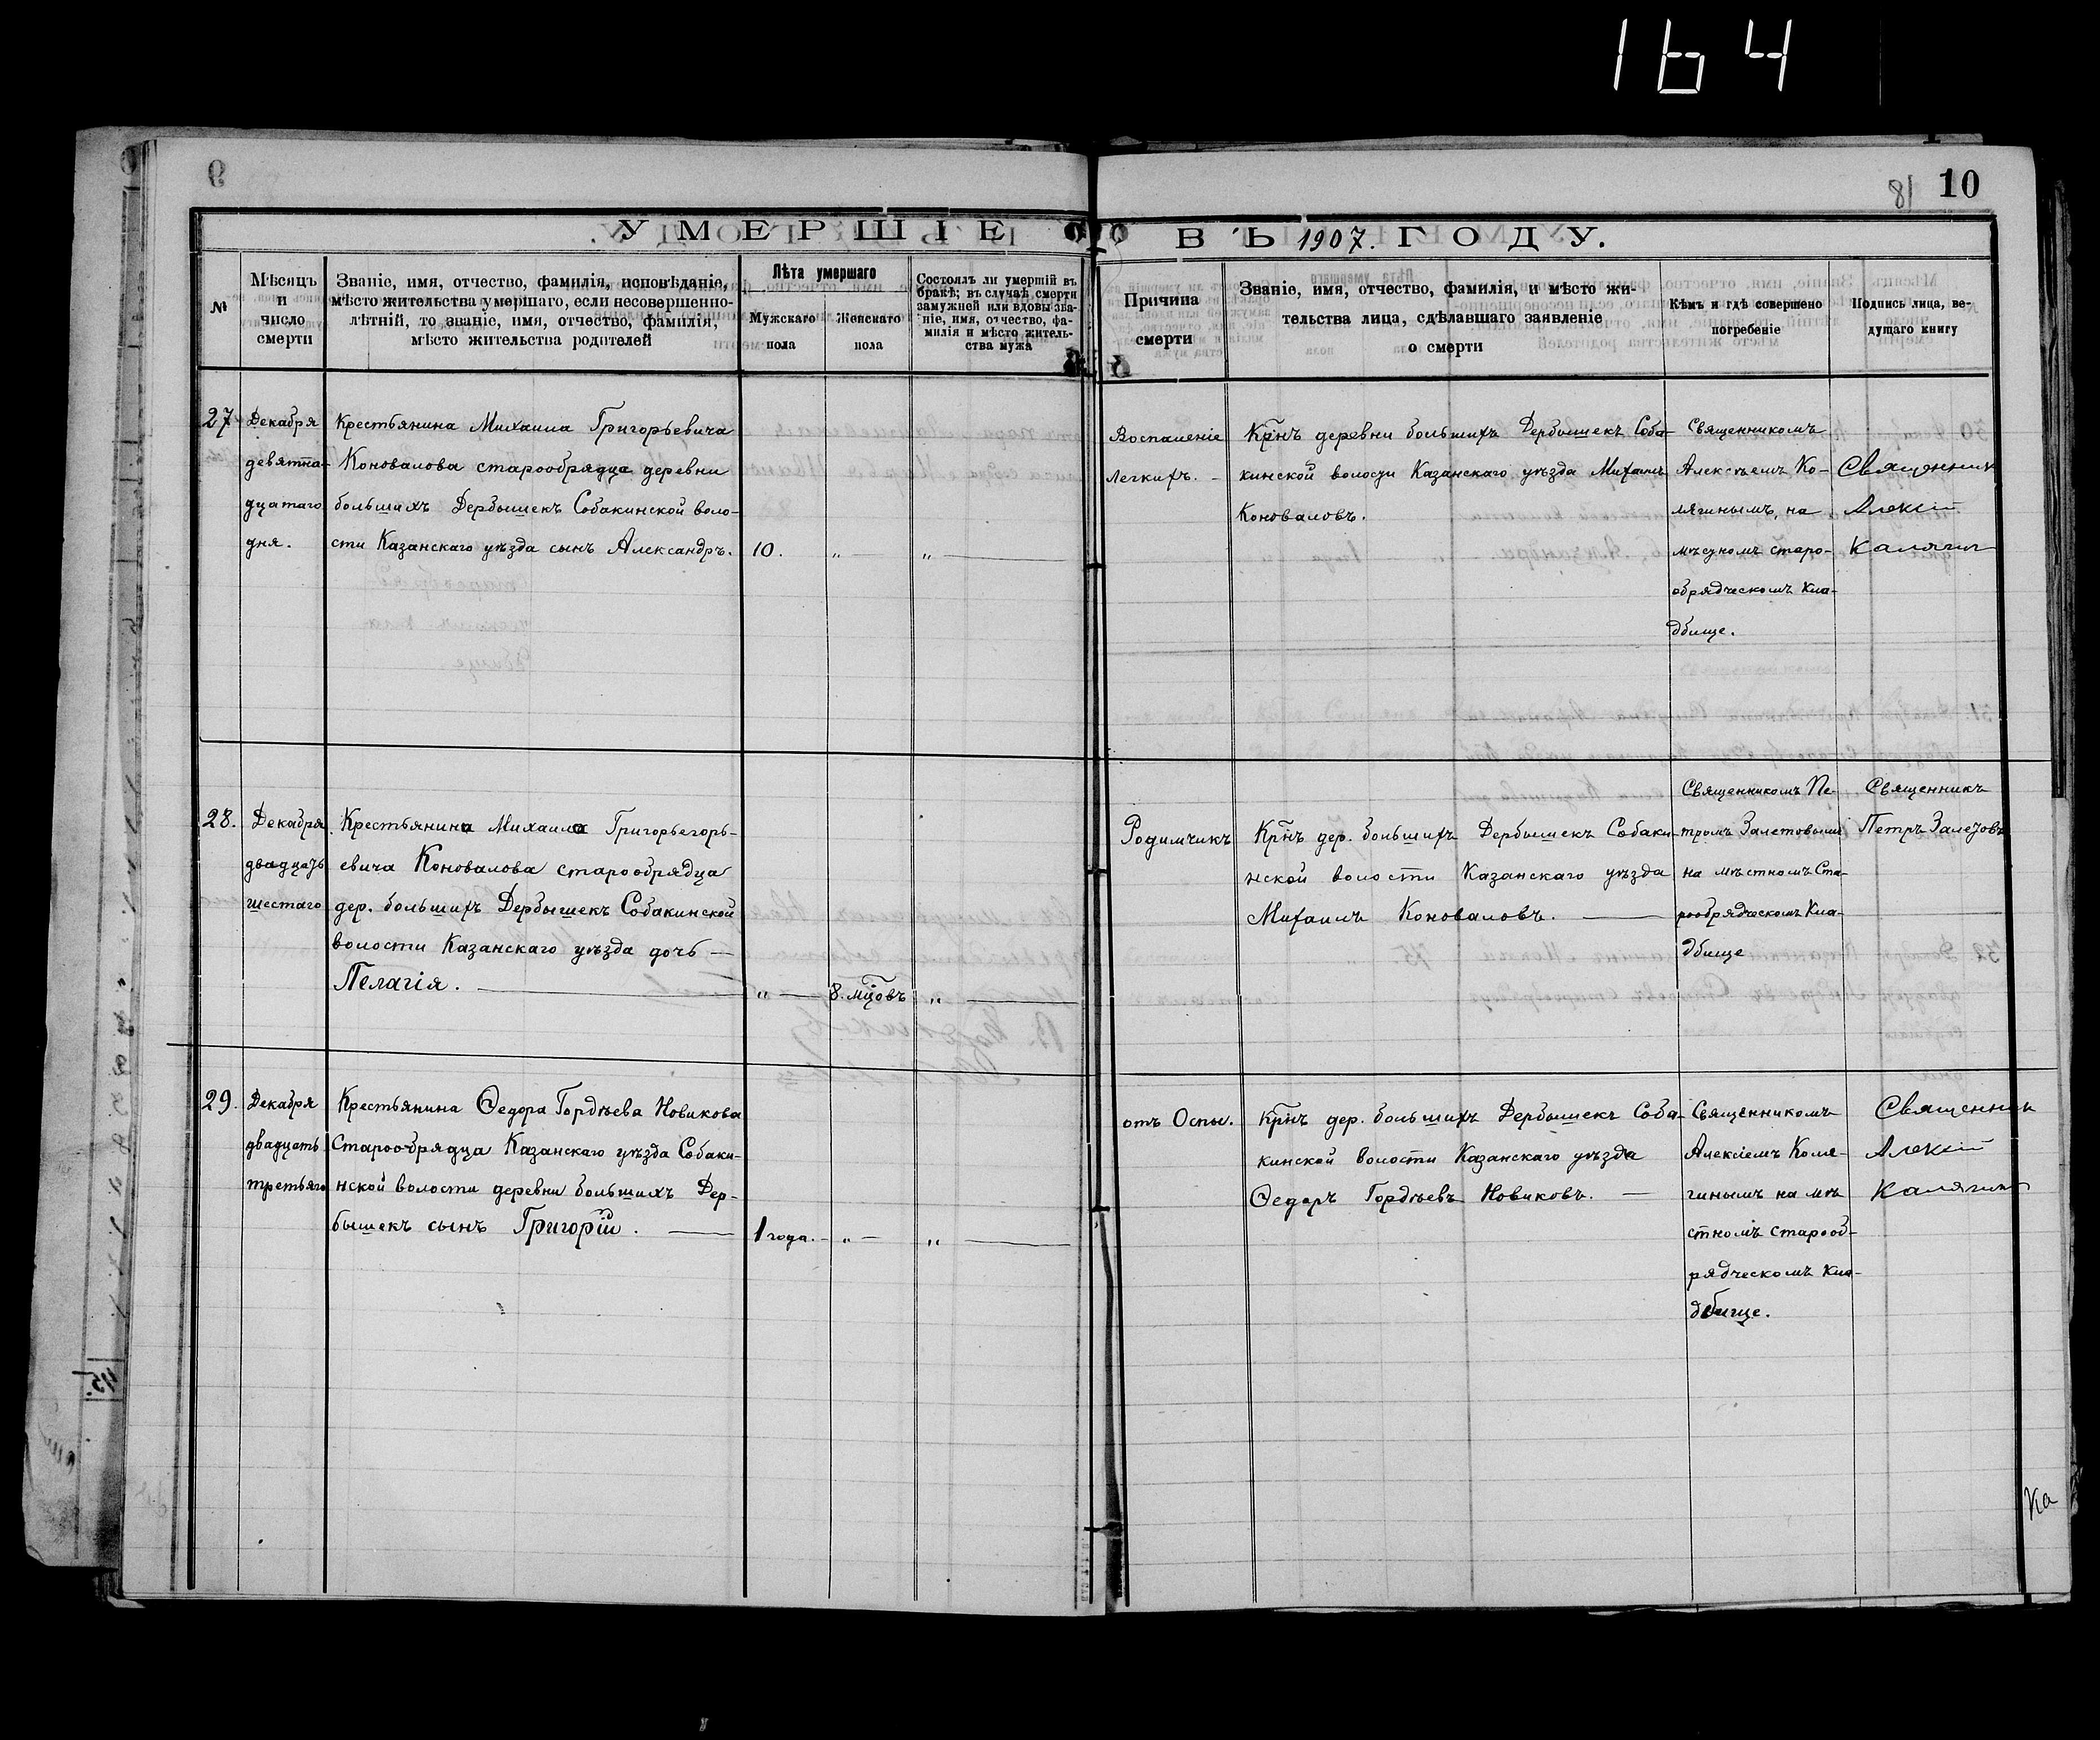 164
10
УМЕРШІЕ ВЪ 1907. ГОДУ.
№
Мѣсяцъ
и
число
смерти
Званіе, имя, отчество, фамилія, исповѣданіе,
мѣсто жительства умершаго, если несовершенно-
лѣтній, то званіе, имя, отчество, фамилія,
мѣсто жительства родителей
Лѣта умершаго
Мужскаго
пола
Женскаго
пола
Состоялъ ли умершій въ
бракѣ; въ случаѣ смерти
замужней или вдовы зва-
ніе, имя, отчество, фа-
милія и мѣсто житель-
ства мужа
Причина
смерти
Званіе, имя, отчество, фамилія, и мѣсто жи-
тельства лица, сдѣлавшаго заявленіе
о смерти
Кѣмъ и гдѣ совершено
погребеніе
Подпись лица, ве-
дущаго книгу
27
Декабря
девятна-
дцатаго
дня.
Крестьянина Михаила Григорьевича
Коновалова старообрядца деревни
большихъ Дербышекъ Собакинской воло-
сти Казанскаго уѣзда сынъ Александръ.
10.
„
„
Воспаленіе
легкихъ.
Крнъ деревни большихъ Дербышекъ Соба-
кинской волости Казанскаго уѣзда Михаилъ
Коноваловъ.
Священникомъ
Алексѣемъ Ко-
лягинымъ, на
мѣстномъ старо-
обрядческомъ Кла-
дбище.
Священник
Алексій
Калягин
28.
Декабря
двадцать
шестаго
Крестьянина Михаила Григорьегорь-
евича Коновалова старообрядца
дер. большихъ Дербышекъ Собакинской
волости Казанскаго уѣзда дочь —
Пелагія.
„
8. мцовъ
„
Родимчикъ
Крнъ дер. большихъ Дербышекъ Собаки-
нской волости Казанскаго уѣзда
Михаилъ Коноваловъ.
Священникомъ Пе-
тромъ Залетовымъ
на мѣстномъ Ста-
рообрядческомъ Кла-
дбище
Священникъ
Петръ Залетовъ
29.
Декабря
двадцать
третьяго
Крестьянина Ѳедора Гордѣева Новикова
Старообрядца Казанскаго уѣзда Собаки-
нской волости деревни большихъ Дер-
бышекъ сынъ Григорій.
1 года.
„
„
отъ Оспы.
Крнъ дер. большихъ Дербышекъ Соба-
кинской волости Казанскаго уѣзда
Ѳедоръ Гордѣевъ Новиковъ.
Священникомъ
Алексіемъ Коля-
гинымъ на мѣ
стномъ старооб-
рядческомъ Кла-
дбище.
Священник
Алексій
Калягин
Ка